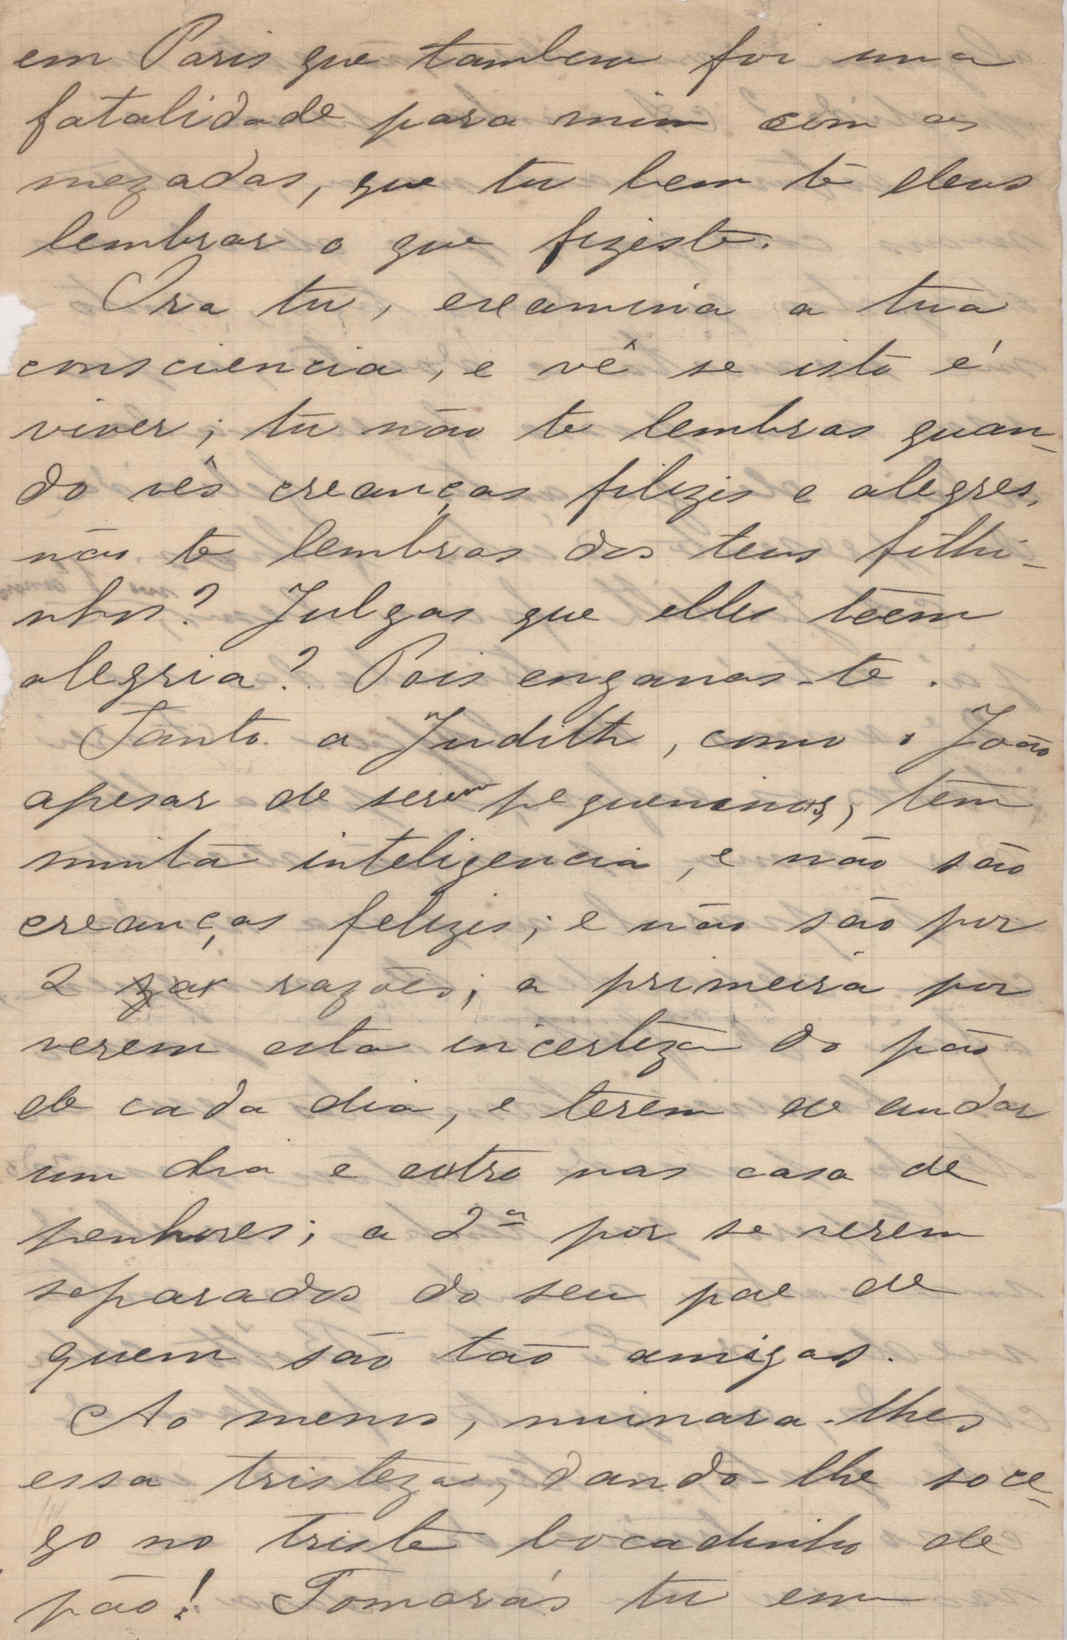 em Paris que tambem foi uma
fatalidade para mim com as
mezadas, que tu bem te deves
lembrar o que fizeste.
Ora tu, examina a tua
consciencia, e vê se isto é
viver; tu não te lembras quan-
do vês creanças filizes e alegres,
não te lembras dos teus filhi-
nhos? Julgas que elles teem
alegria? Pois enganas-te.
Tanto a Judith, como o João
apesar de serem pequeninos, tem
muita inteligencia, e não são
creanças felizes; e não são por
2 razões; a primeira por
verem esta incerteza do pão
de cada dia, e terem de andar
um dia e outro nas casa de
penhores; a 2ª por se verem
separados do seu pae de
quem são tão amigos.
Ao menos, minora-lhes
essa tristeza, dando-lhe soce-
go no triste bocadinho de
pão! Tomarás tu em